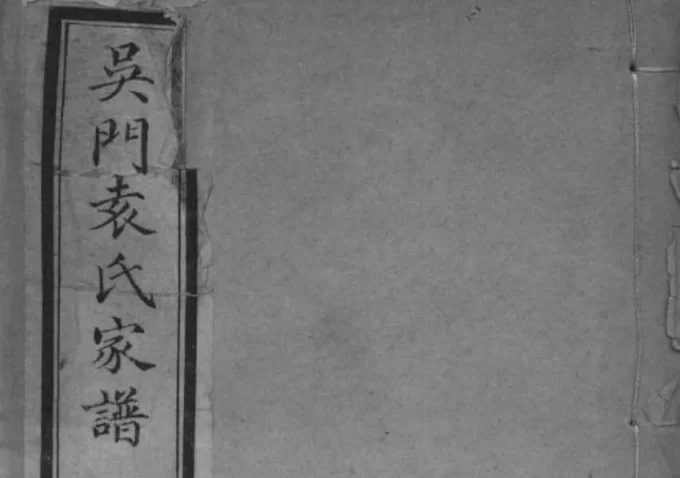 吳門袁氏家譜